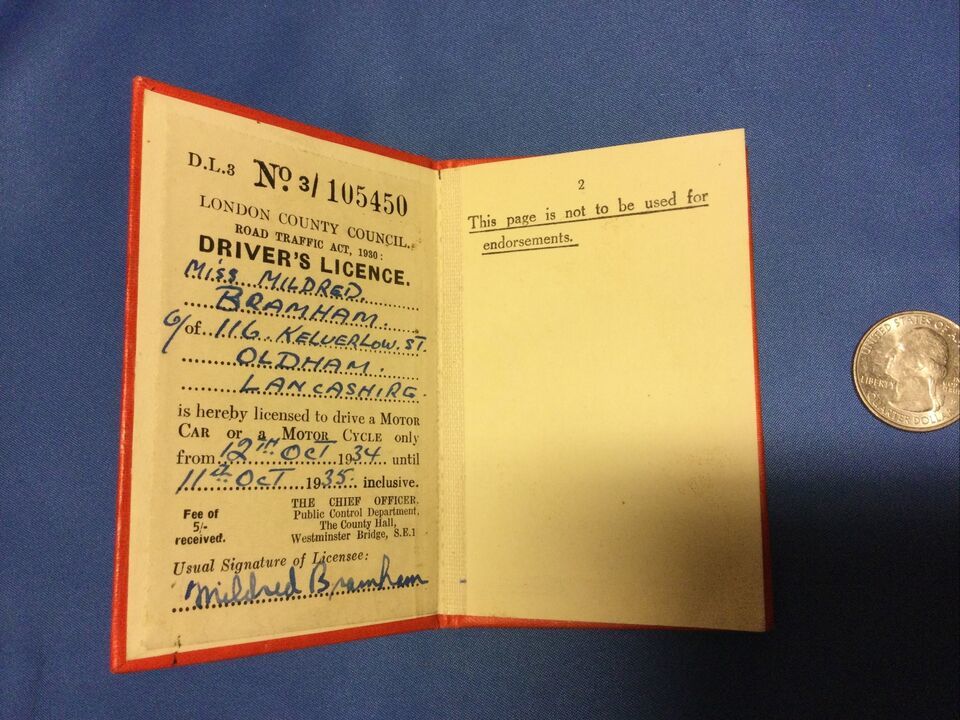 D.L.3 No. 3/105450
LONDON COUNTY COUNCIL.
ROAD TRAFFIC ACT, 1930:
DRIVER'S LICENCE.
Miss MILDRED.
BRAMHAM.
of 116 KELVERLOW. ST.
OLDHAM.
LANCASHIRE.
is hereby licensed to drive a MOTOR
CAR or a MOTOR CYCLE only
from 12TH OCT 1934 until
11th OCT 1935 inclusive.
Fee of
5/-
received.
THE CHIEF OFFICER,
Public Control Department,
The County Hall,
Westminster Bridge, S.E.1
Usual Signature of Licensee:
Mildred Bramham
2
This page is not to be used for
endorsements.
UNITED STATES OF
LIBERTY
QUARTER DOLLAR